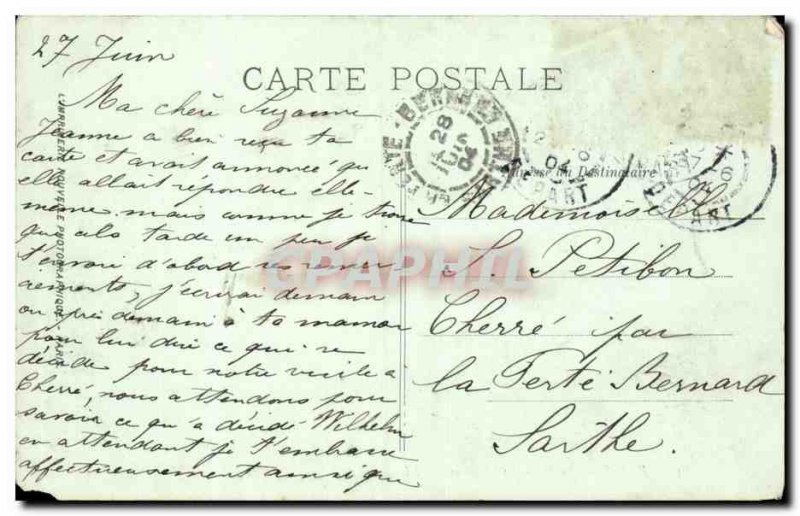 27 Juin
CARTE POSTALE
Ma chère Suzanne
Jeanne a bien reçu ta
carte et avait annoncé qu
elle allait répondre elle-
même mais comme je trouve
que cela tarde un peu je
t'envoie d'abord ses remer-
ciements, j'écrirai demain
ou après demain à ta maman
pour lui dire ce qui se
décide pour notre visite à
Cherré, nous attendons pour
savoir ce qu'a décidé Wilhelm
en attendant je t'embrasse
affectueusement ainsi que
Adresse du Destinataire
Mademoiselle
S. Petibon
Cherré par
la Ferté Bernard
Sarthe.
LA FERTE-BERNARD
28
JUIN
04
04
DEPART
CPAPHIL
NOUVELLE PHOTOGRAPHIQUE - PARIS